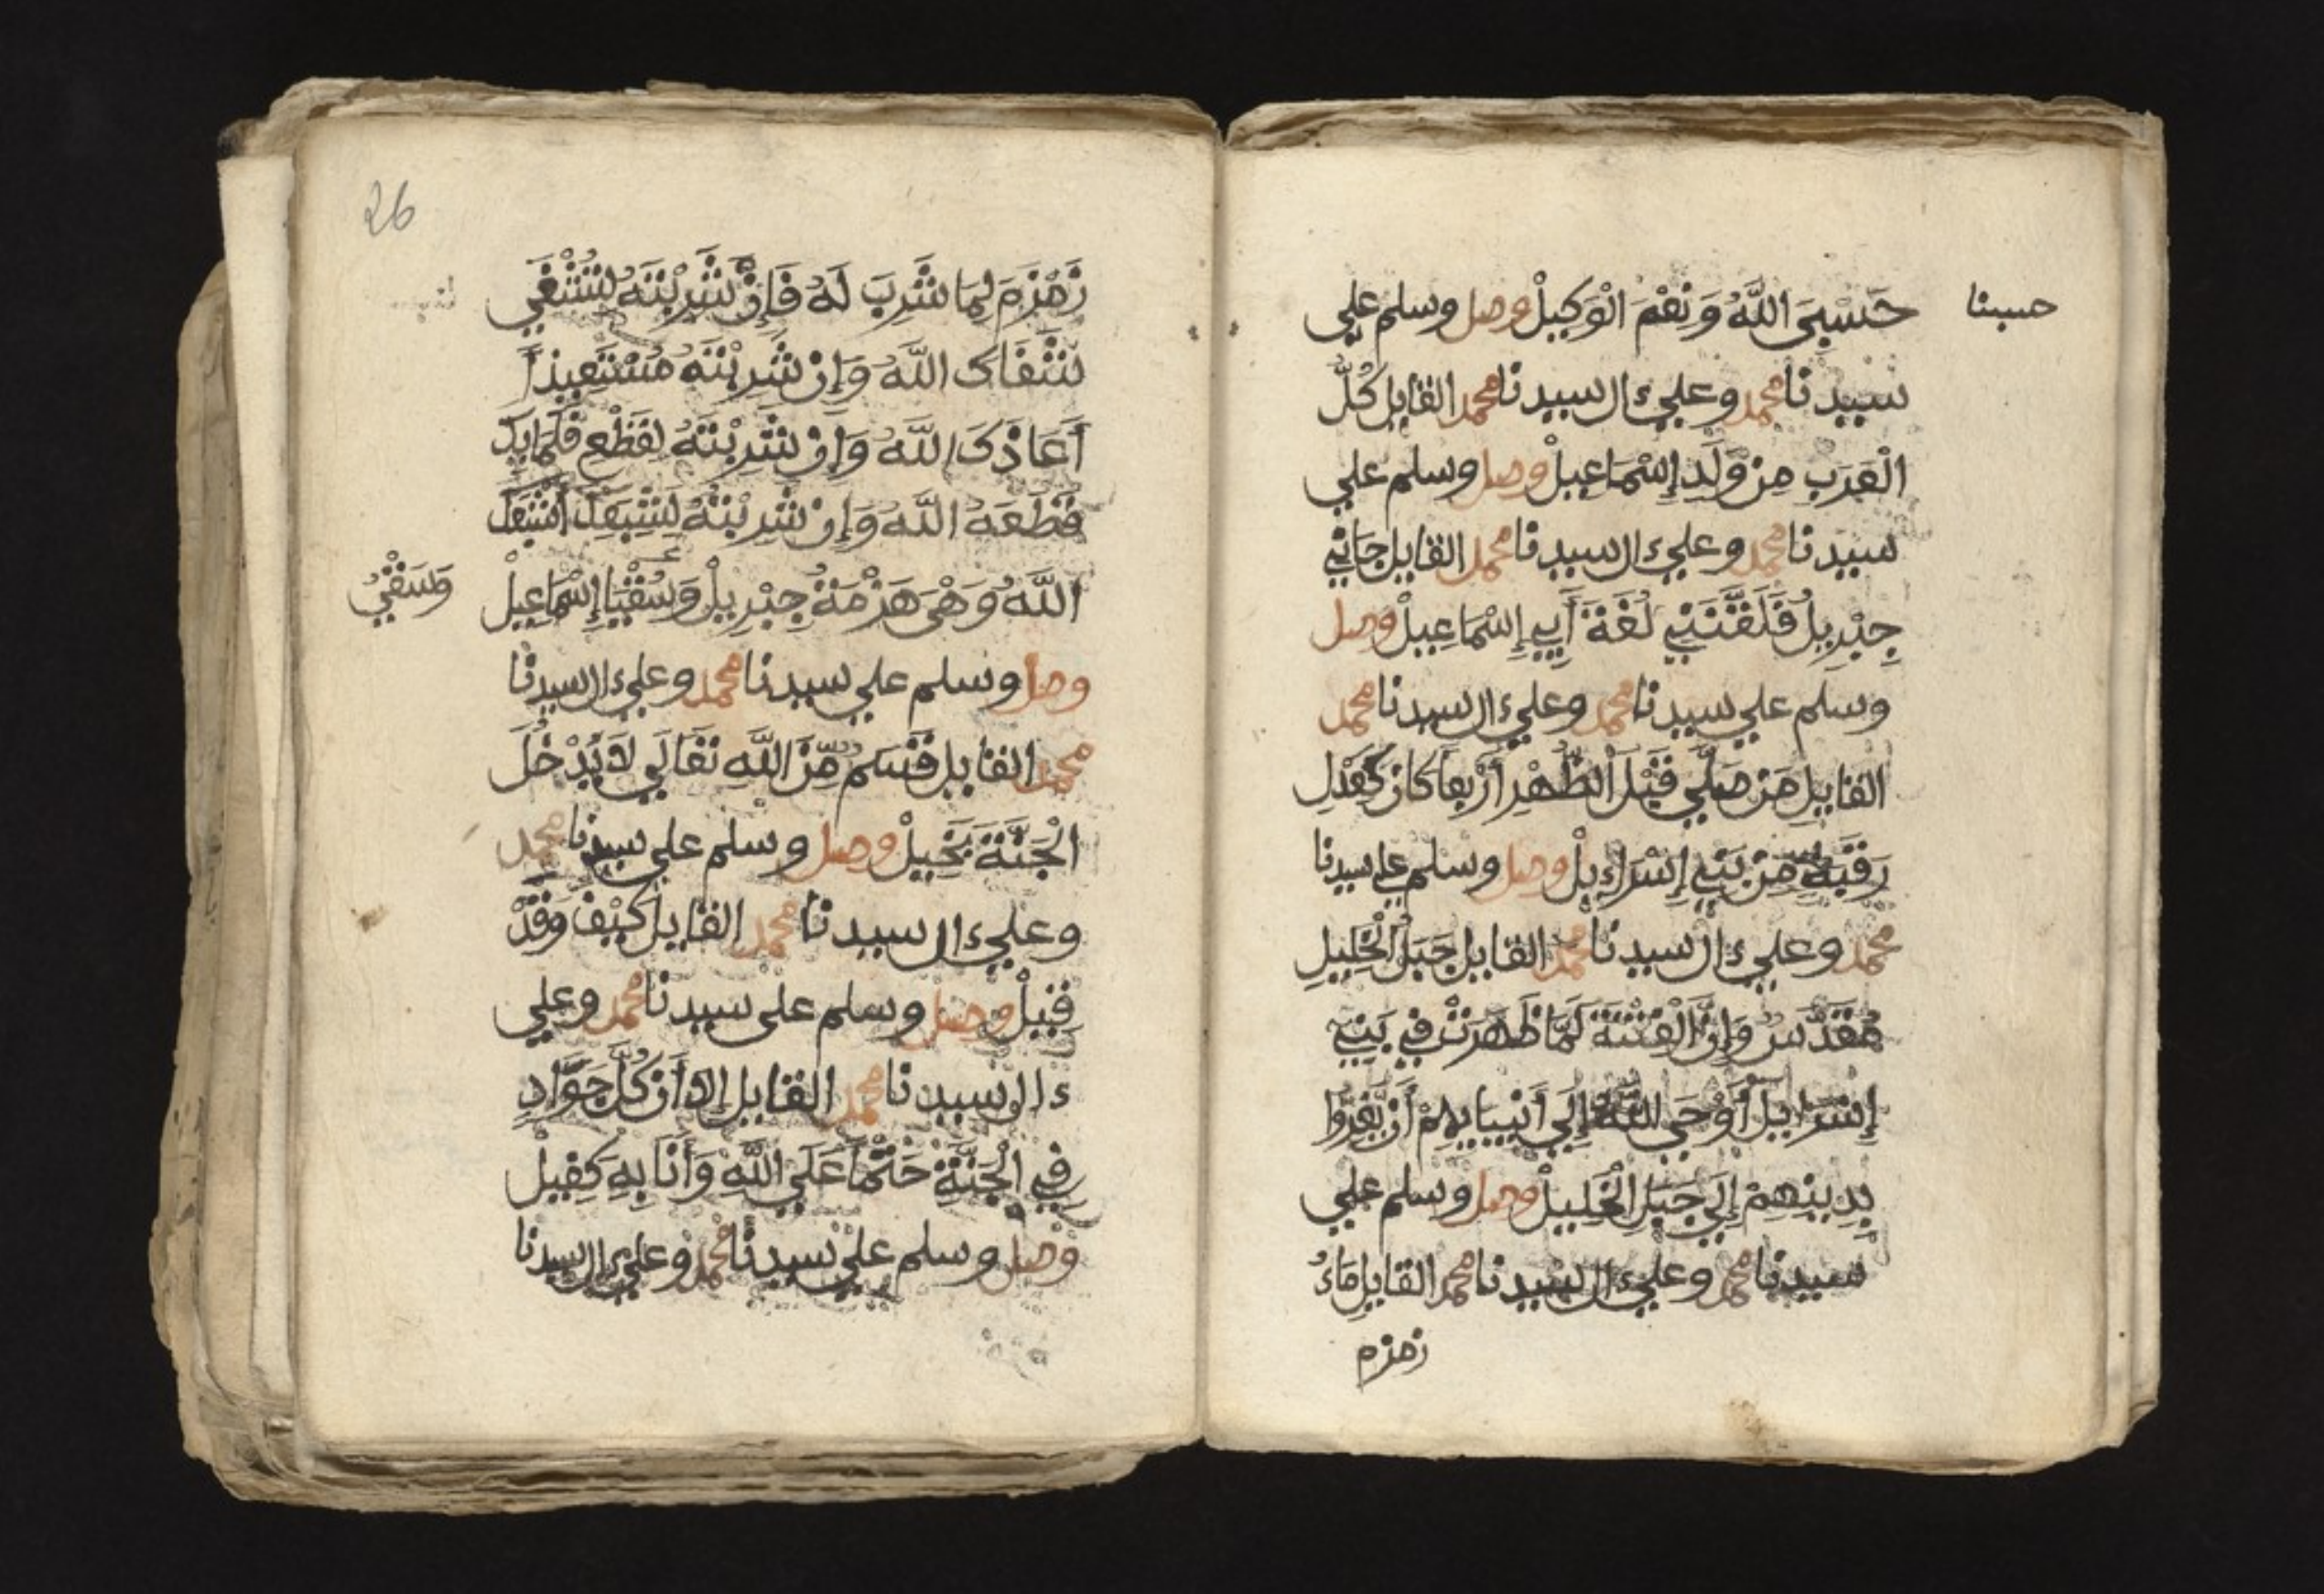 حسبنا
حَسْبِيَ اللَّهُ وَنِعْمَ الْوَكِيلْ وصل وسلم علي
سيدنا محمد وعلي ءال سيدنا محمد القايل كُلُّ
الْعَرَبِ مِنْ وَّلَدِ إِسْمَاعِيلْ وصل وسلم علي
سيدنا محمد وعلي ءال سيدنا محمد القايل جَانِي
جِبْرِيلُ فَلَقَّنَنِي لُغَةَ أَبِي إِسْمَاعِيلْ وصل
وسلم علي سيدنا محمد وعلي ءال سيدنا محمد
القايل مَن صَلَّي قَبْلَ الظُّهْرِ أَرْبعاً كان كَعَدْلِ
رَقَبَةٍ مِنْ بَنِي إِسْرَاءِيلْ وصل وسلم علي سيدنا
محمد وعلي ءال سيدنا محمد القايل جَبَلُ الْخَلِيلِ
مُقَدَّسٌ وَإِنَّ الْفِتْنَةَ لَمَّا ظَهَرَتْ فِي بَنِي
إِسْرَايِيلَ أَوْحَي اللَّهُ إِلَي أَنْبِيَايِهِمْ أَنْ يَّفِرُّوا
بِدِينِهِمْ إِلَي جَبَلِ الْخَلِيلْ وصل وسلم علي
سيدنا محمد وعلي ءال سيدنا محمد القايل مَاءُ
زمزم
26
زَمْزَمَ لِمَا شُرِبَ لَهُ فَإِنْ شَرِبْتَهُ لِتَشْتَفِي
شَفَاكَ اللَّهُ وَإِنْ شَرِبْتَهُ مُسْتَعِيذاً
أَعَاذَكَ اللَّهُ وَإِنْ شَرِبْتَهُ لِقَطْعِ ظَمَايِكَ
قَطَعَهُ اللَّهُ وَإِنْ شَرِبْتَهُ لِشِبَعِكَ أَشْبَعَكَ
اللَّهُ وَهْيَ هَزْمَةُ جِبْرِيلْ وَسُقْيَا إِسْمَاعِيلْ
وَسَقْيُ
وصل وسلم علي سيدنا محمد وعلي ءال سيدنا
محمد القايل قَسَمٌ مِّنَ اللَّهِ تَعَالَي لاَ يَدْخُلَ
الْجَنَّةَ بَخِيلْ وصل وسلم علي سيدنا محمد
وعلي ءال سيدنا محمد القايل كَيْفَ وَقَدْ
قِيلْ وصل وسلم علي سيدنا محمد وعلي
ءال سيدنا محمد القايل إلا أَن كُلَّ جَوَّادٍ
فِي الْجَنَّةِ حَتْماً عَلَي اللَّهِ وَأَنَا بِهِ كَفِيلْ
وصل وسلم علي سيدنا محمد وعلي ءال سيدنا